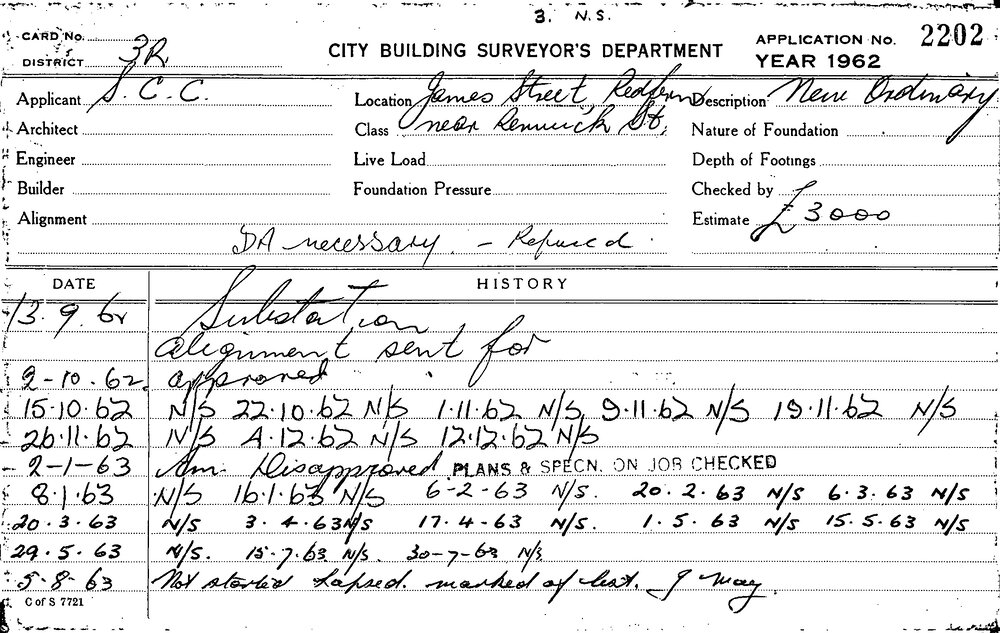 3. N.S.
CARD No.
DISTRICT 3R
CITY BUILDING SURVEYOR'S DEPARTMENT
APPLICATION No. 2202
YEAR 1962
Applicant S.C.C. Location James Street, Redfern Description New Ordinary
Architect Class near Renwick St, Nature of Foundation
Engineer Live Load Depth of Footings
Builder Foundation Pressure Checked by
Alignment Estimate £3000
DA necessary. - Refused.
DATE HISTORY
13.9.62 Substation
alignment sent for
2-10.62. approved
15.10.62 N/S 22.10.62 N/S 1.11.62 N/S 9.11.62 N/S 19.11.62 N/S
26.11.62 N/S 4.12.62 N/S 12.12.62 N/S
-2-1-63 Am. Disapproved PLANS & SPECN. ON JOB CHECKED
8.1.63 N/S 16.1.63 N/S 6-2-63 N/S. 20.2.63 N/S 6.3.63 N/S
20.3.63 N/S 3.4.63 N/S 17.4-63 N/S. 1.5.63 N/S 15.5.63 N/S
29.5.63 N/S. 15.7.63 N/S. 30-7-63 N/S
5-8-63 Not started Lapsed. marked of list. J May
C of S 7721